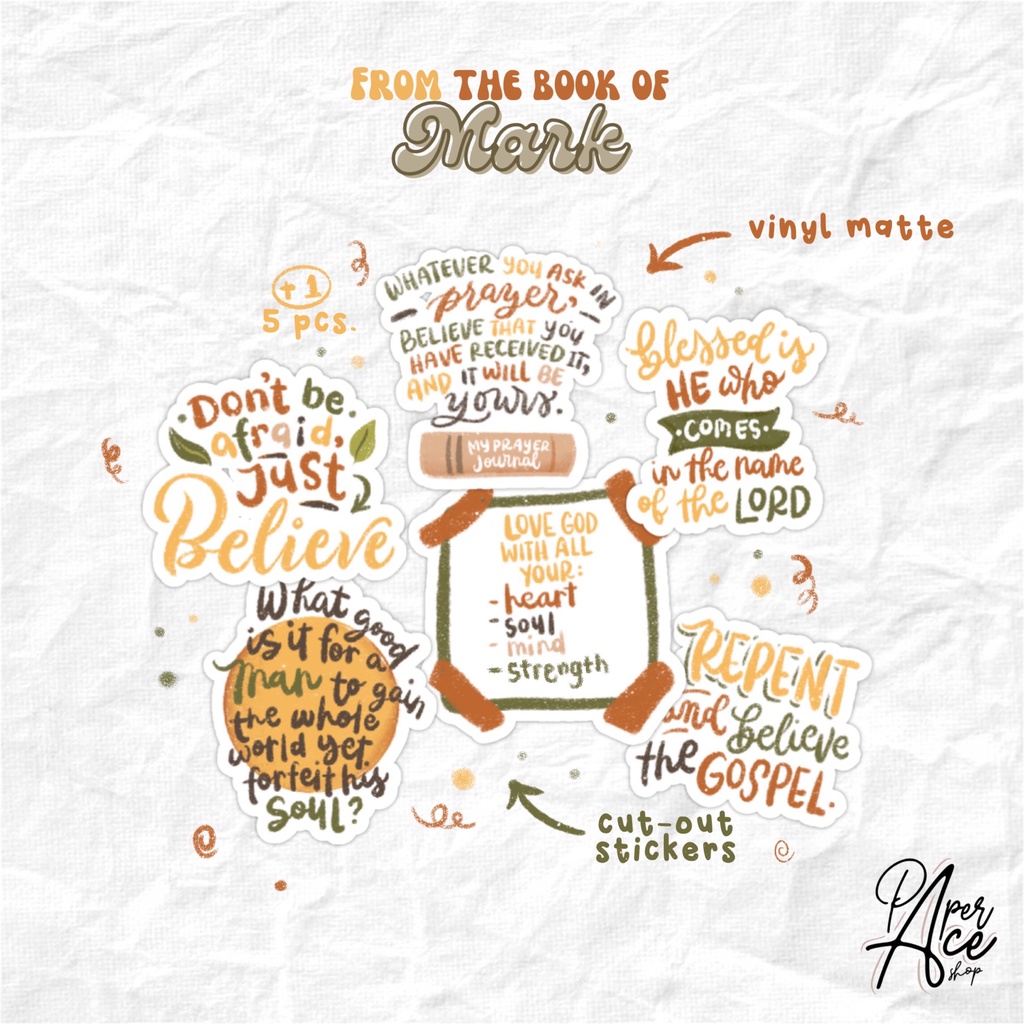 FROM THE BOOK OF
Mark
vinyl matte
+1
5 pcs.
WHATEVER YOU ASK IN
prayer,
BELIEVE THAT you
HAVE RECEIVED IT,
AND IT WILL BE
yours.
MY PRAYER
Journal
Blessed is
HE who
COMES
in the name
OF the LORD
Don't be
afraid,
Just
Believe
LOVE GOD
WITH ALL
YOUR:
- heart
- soul
- mind
- strength
What good
is it for a
man to gain
the whole
world yet
forfeit his
Soul?
REPENT
and believe
the GOSPEL.
cut-out
stickers
PAper
Ace
shop